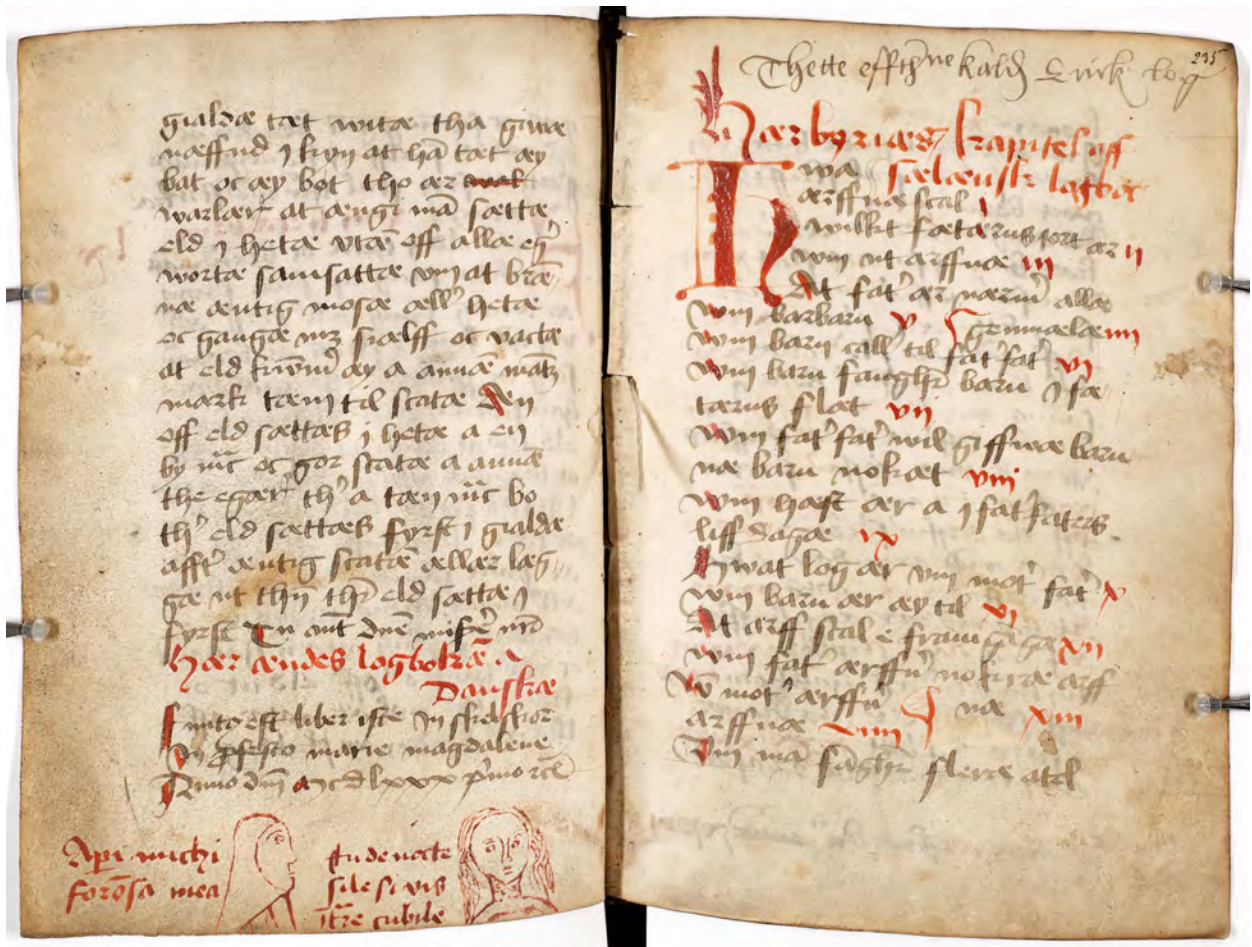 gialdæ tæt witæ tha giwæ
næffnd j kyn at hā tæt æy
bat oc æy bot tho ær
warlær at ængi mā sættæ
eld j hetæ vtæ off allæ
wortæ samsattæ vm at bræ
næ æntig mosæ æll' hetæ
oc gangæ mz sialff oc vactæ
at eld æy a annæ
mark tæm til scatæ Æn
off eld sættæs j hetæ a en
by oc gor scatæ a annæ
the egær th' a tæn bo
th' eld sættæs fyrst j gialdæ
afft' æntig scatæ ællær læg
gæ ut eld sættæ j
fyrst Tu aut
Hær ændes logbokæ a
Danskæ
finitꝰ est liber iste In skelskor
In ꝓfesto marie magdalene
Anno dm̄ mcdlxxx pͥmo
Aperi michi
formōsa mea
tu de nocte
sile si vis
ītre cubile
Thette effth'ne kald Erick log
235
Hær byriæs krapitel off
wa sælænsk logboc
ærffuæ scal j
hwilkit fætærus tort ær ij
wm ut arffuæ iij
At fat' ær nærm' allæ
wm barbarn v gemmælæ iiij
wm barn call' til fat' fat' vj
wm barn fanghr barn j fæ
tærus flæt vij
wm fat' fat' wil giffwæ barn
næ barn nokæt viij
wm hæst ær a j fat' faters
liff dagæ ix
Hwat log ær vm mot' fat' x
wm barn ær æy til xj
At arff scal e fram gāgæ xij
wm fat' ærffu' nokræ arff
wm mot' ærffu' næ xiij
arffuæ xiiij
wm mā fāghr fleræ